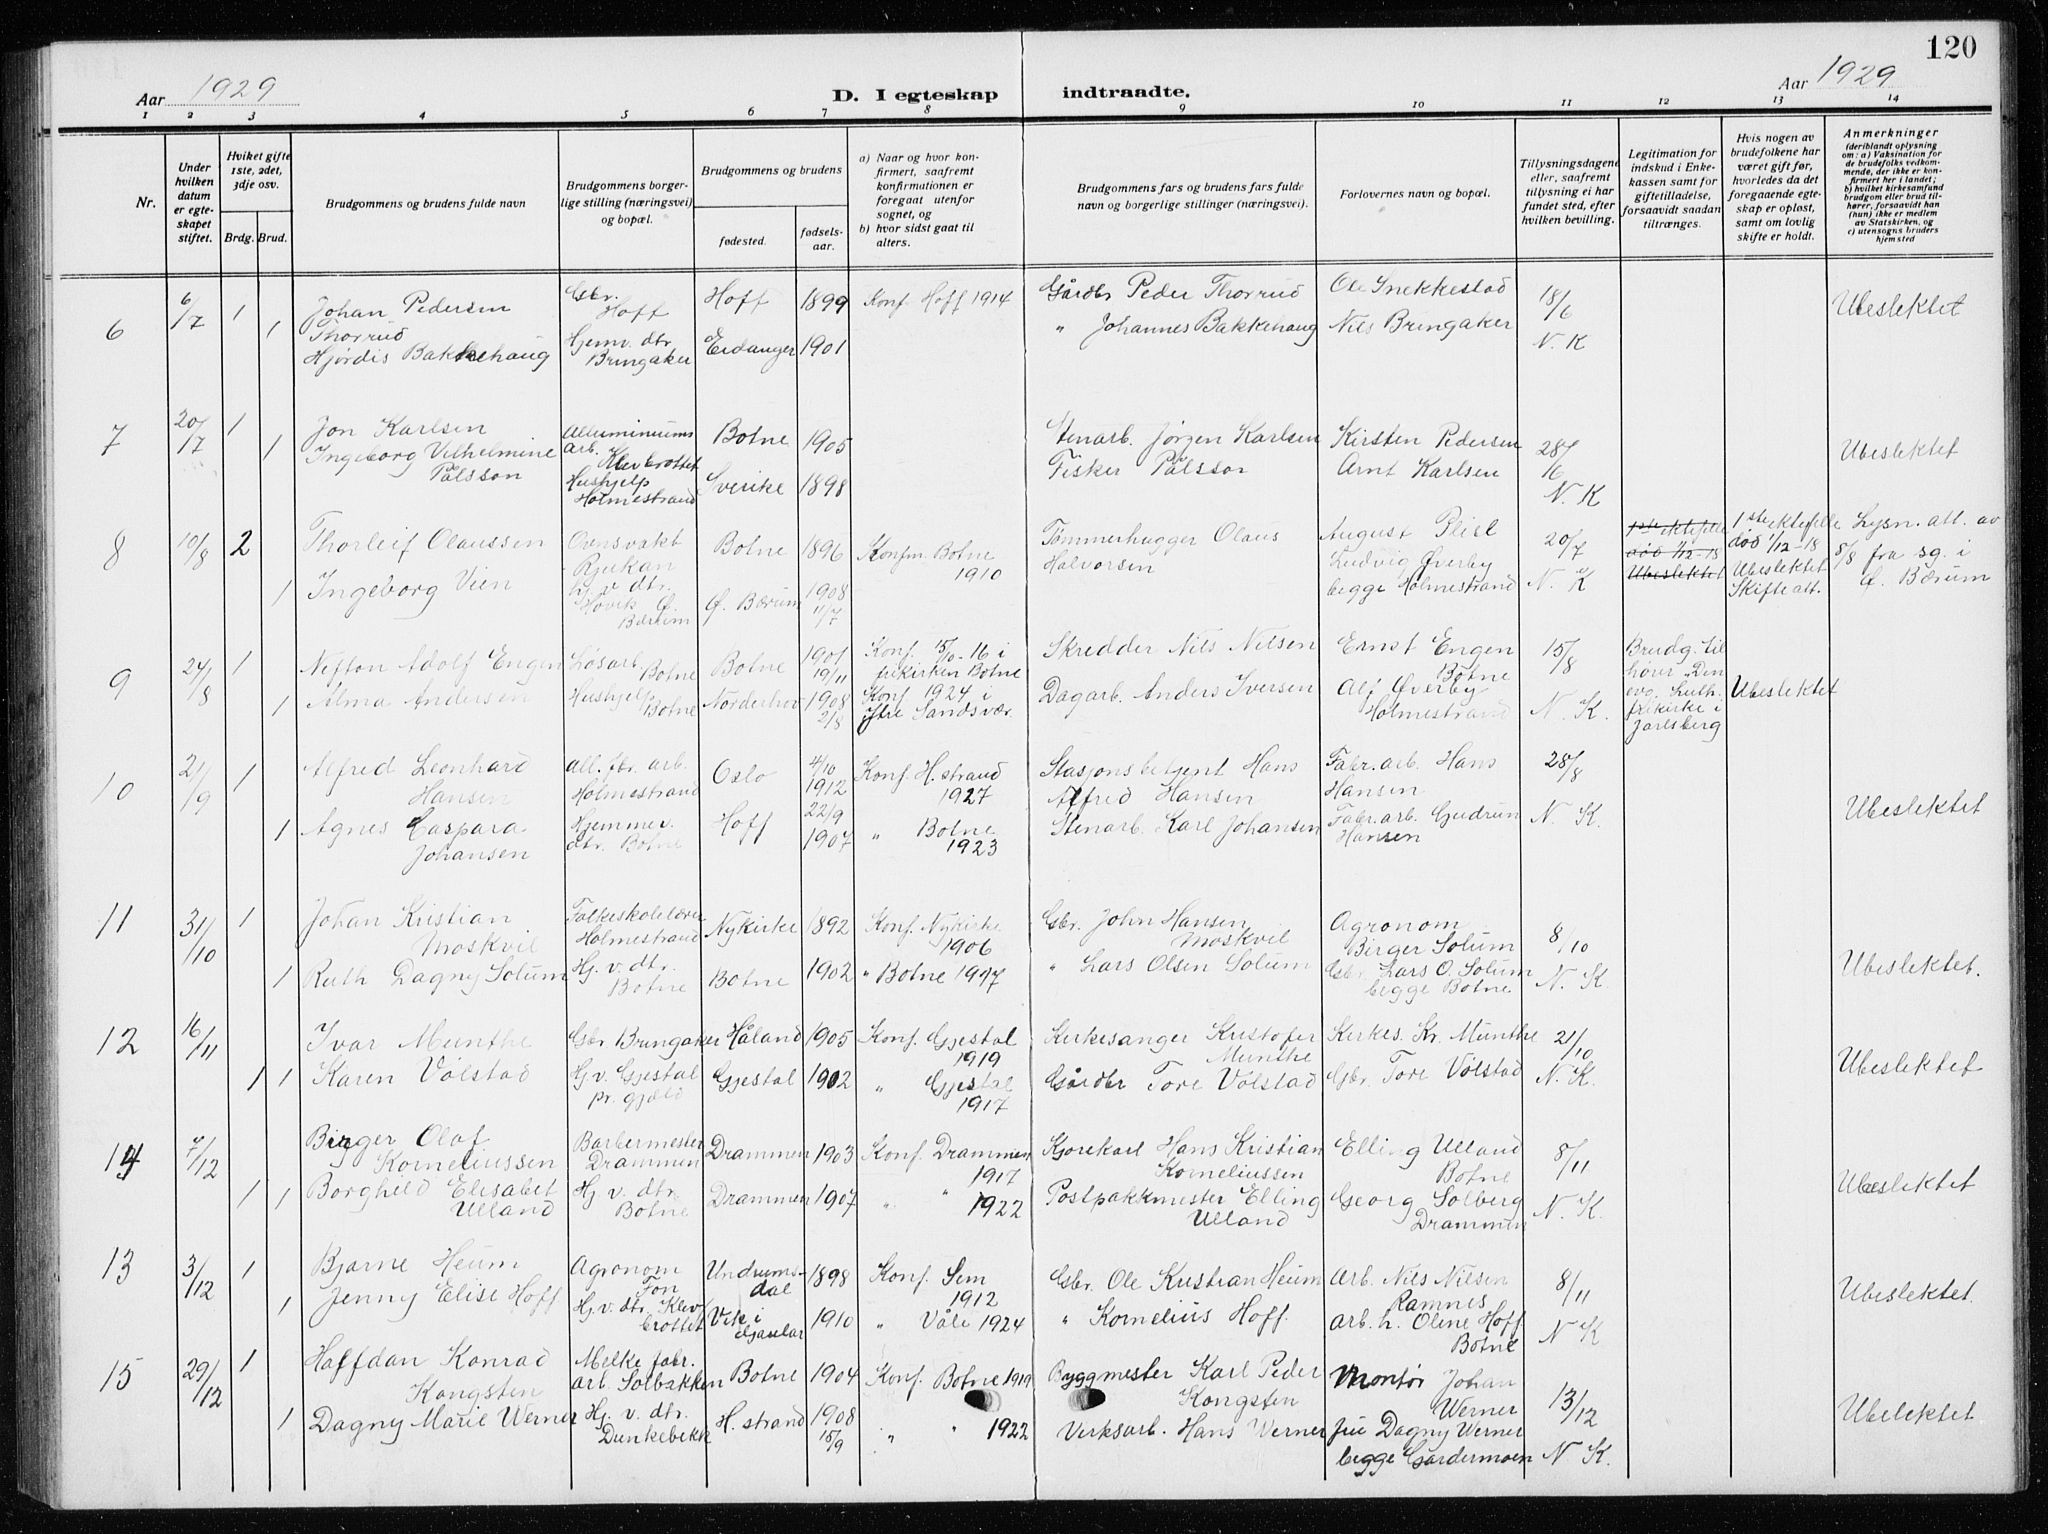 120
Aar 1929
D. I egteskap indtraadte.
Aar 1929
1 2 3 4 5 6 7 8 9 10 11 12 13 14
Nr.
Under hvilken datum er egteskapet stiftet.
Hviket gifte 1ste, 2det, 3dje osv.
Brdg. Brud.
Brudgommens og brudens fulde navn
Brudgommens borgerlige stilling (næringsvei) og bopæl.
Brudgommens og brudens
fødested. fødselsaar.
a) Naar og hvor konfirmert, saafremt konfirmationen er foregaat utenfor sognet, og
b) hvor sidst gaat til alters.
Brudgommens fars og brudens fars fulde navn og borgerlige stillinger (næringsvei).
Forlovernes navn og bopæl.
Tillysningsdagene eller, saafremt tillysning ei har fundet sted, efter hvilken bevilling.
Legitimation for indskud i Enkekassen samt for giftetilladelse, forsaavidt saadan tiltrænges.
Hvis nogen av brudefolkene har været gift før, hvorledes da det foregaaende egteskap er opløst, samt om lovlig skifte er holdt.
Anmerkninger (deriblandt oplysning om: a) Vaksination for de brudefolks vedkommende, der ikke er konfirmert her i landet; b) hvilket kirkesamfund brudgom eller brud tilhører, forsaavidt han (hun) ikke er medlem av Statskirken, og c) utensogns bruders hjemsted
6 6/7 1 Johan Pedersen Thorrud Gbr. Hoff Hoff 1899 Konf. Hoff 1914 Gårdbr Peder Thorrud Ole Snekkestad 18/6 Ubeslektet
1 Hjørdis Bakkehaug Hjemv. dtr. Bringaker Eidanger 1901 " Johannes Bakkehaug Nils Bringaker N. K
7 20/7 1 Jon Karlsen Alluminiums arb. Klevbrottet Botne 1905 Stenarb. Jørgen Karlsen Kirsten Pedersen 28/6 Ubeslektet
1 Ingeborg Vilhelmine Pålsson Hushjelp Holmestrand Sverike 1898 Fisker Pålsson Arnt Karlsen N. K
8 10/8 2 Thorleif Olaussen Ovnsvakt Rjukan Botne 1896 Konfm. Botne 1910 Tømmerhugger Olaus Halvorsen August Plisl 20/7 1ste ektefelle død 1/12-18 Ubeslektet 1ste ektefelle død 1/12-18 Ubeslektet Skifteatt. Lysn. att. av 8/8 fra sg. i Ø. Bærum
1 Ingeborg Vien hj. v dtr. Høvik Ø. Bærum Ø. Bærum 1908 11/7 Ludvig Øverby begge Holmestrand N. K
9 24/8 1 Nefton Adolf Engen Løsarb. Botne Botne 1901 19/11 Konf. 15/10-16 i frikirken Botne Skredder Nils Nilsen Ernst Engen Botne 15/8 Brudg. tilhører "Den evg. Luth. frikirke i Jarlsberg Ubeslektet
1 Alma Andersen Hushjelp Botne Norderhov 1908 2/8 Konf. 1924 i Ytre Sandsvær. Dagarb. Anders Iversen Alf Øverby Holmestrand N. K.
10 21/9 1 Alfred Leonhard Hansen all. fbr. arb. Holmestrand Oslo 4/10 1912 Konf. H.strand 1927 Stasjonsbetjent Hans Alfred Hansen Fabr. arb. Hans Hansen 28/8 Ubeslektet
1 Agnes Caspara Johansen Hjemmev. dtr. Botne Hoff 22/9 1907 " Botne 1923 Stenarb. Karl Johansen Fabr. arb. Gudrun Hansen N. K.
11 31/10 1 Johan Kristian Moskvil Folkeskolelærer Holmestrand Nykirke 1892 Konf. Nykirke 1906 Gbr. John Hansen Moskvil Agronom Birger Solum 8/10 Ubeslektet.
1 Ruth Dagny Solum Hj. v. dtr. Botne Botne 1902 " Botne 1917 " Lars Olsen Solum Gbr. Lars O. Solum begge Botne N. K.
12 16/11 Ivar Munthe Gbr Bringaker Håland 1905 Konf. Gjestal 1919 Kirkesanger Kristofer Munthe Kirkes. Kr. Munthe 21/10 Ubeslektet
1 1 Karen Vølstad Hj. v. Gjestal pr. gjeld Gjestal 1902 " Gjestal 1917 Gårdbr Tore Vølstad Gbr. Tore Vølstad N. K.
14 7/12 Birger Olaf Korneliussen Barbermester Drammen Drammen 1903 Konf. Drammen 1917 Kjørekarl Hans Kristian Korneliussen Elling Ulland Botne 8/11 Ubeslektet
1 1 Borghild Elisabet Ulland Hj. v. dtr Botne Drammen 1907 " " 1922 Postpakkmester Elling Ulland Georg Solberg Drammen N. K.
13 3/12 1 Bjarne Heum Agronom Fon Undrumsdal 1898 Konf. Sem 1912 Gbr. Ole Kristian Heum Arb. Nils Nilsen Ramnes 8/11 Ubeslektet.
1 Jenny Elise Hoff Hj. v. dtr. Klevbrottet Vik i 1910 " Våle 1924 " Kornelius Hoff. arb. h. Oline Hoff Botne N. K
15 29/12 1 Halfdan Konrad Kongsten Melke fabr. arb. Solbakken Botne 1904 Konf. Botne 1919 Byggmester Karl Peder Kongsten Montør Johan Werner 13/12 Ubelektet.
1 Dagny Marie Werner Hj. v. dtr. Dunkebekk H. strand 1908 15/9 " " 1922 Verksarb. Hans Werner fru Dagny Werner begge Gardermoen N K.